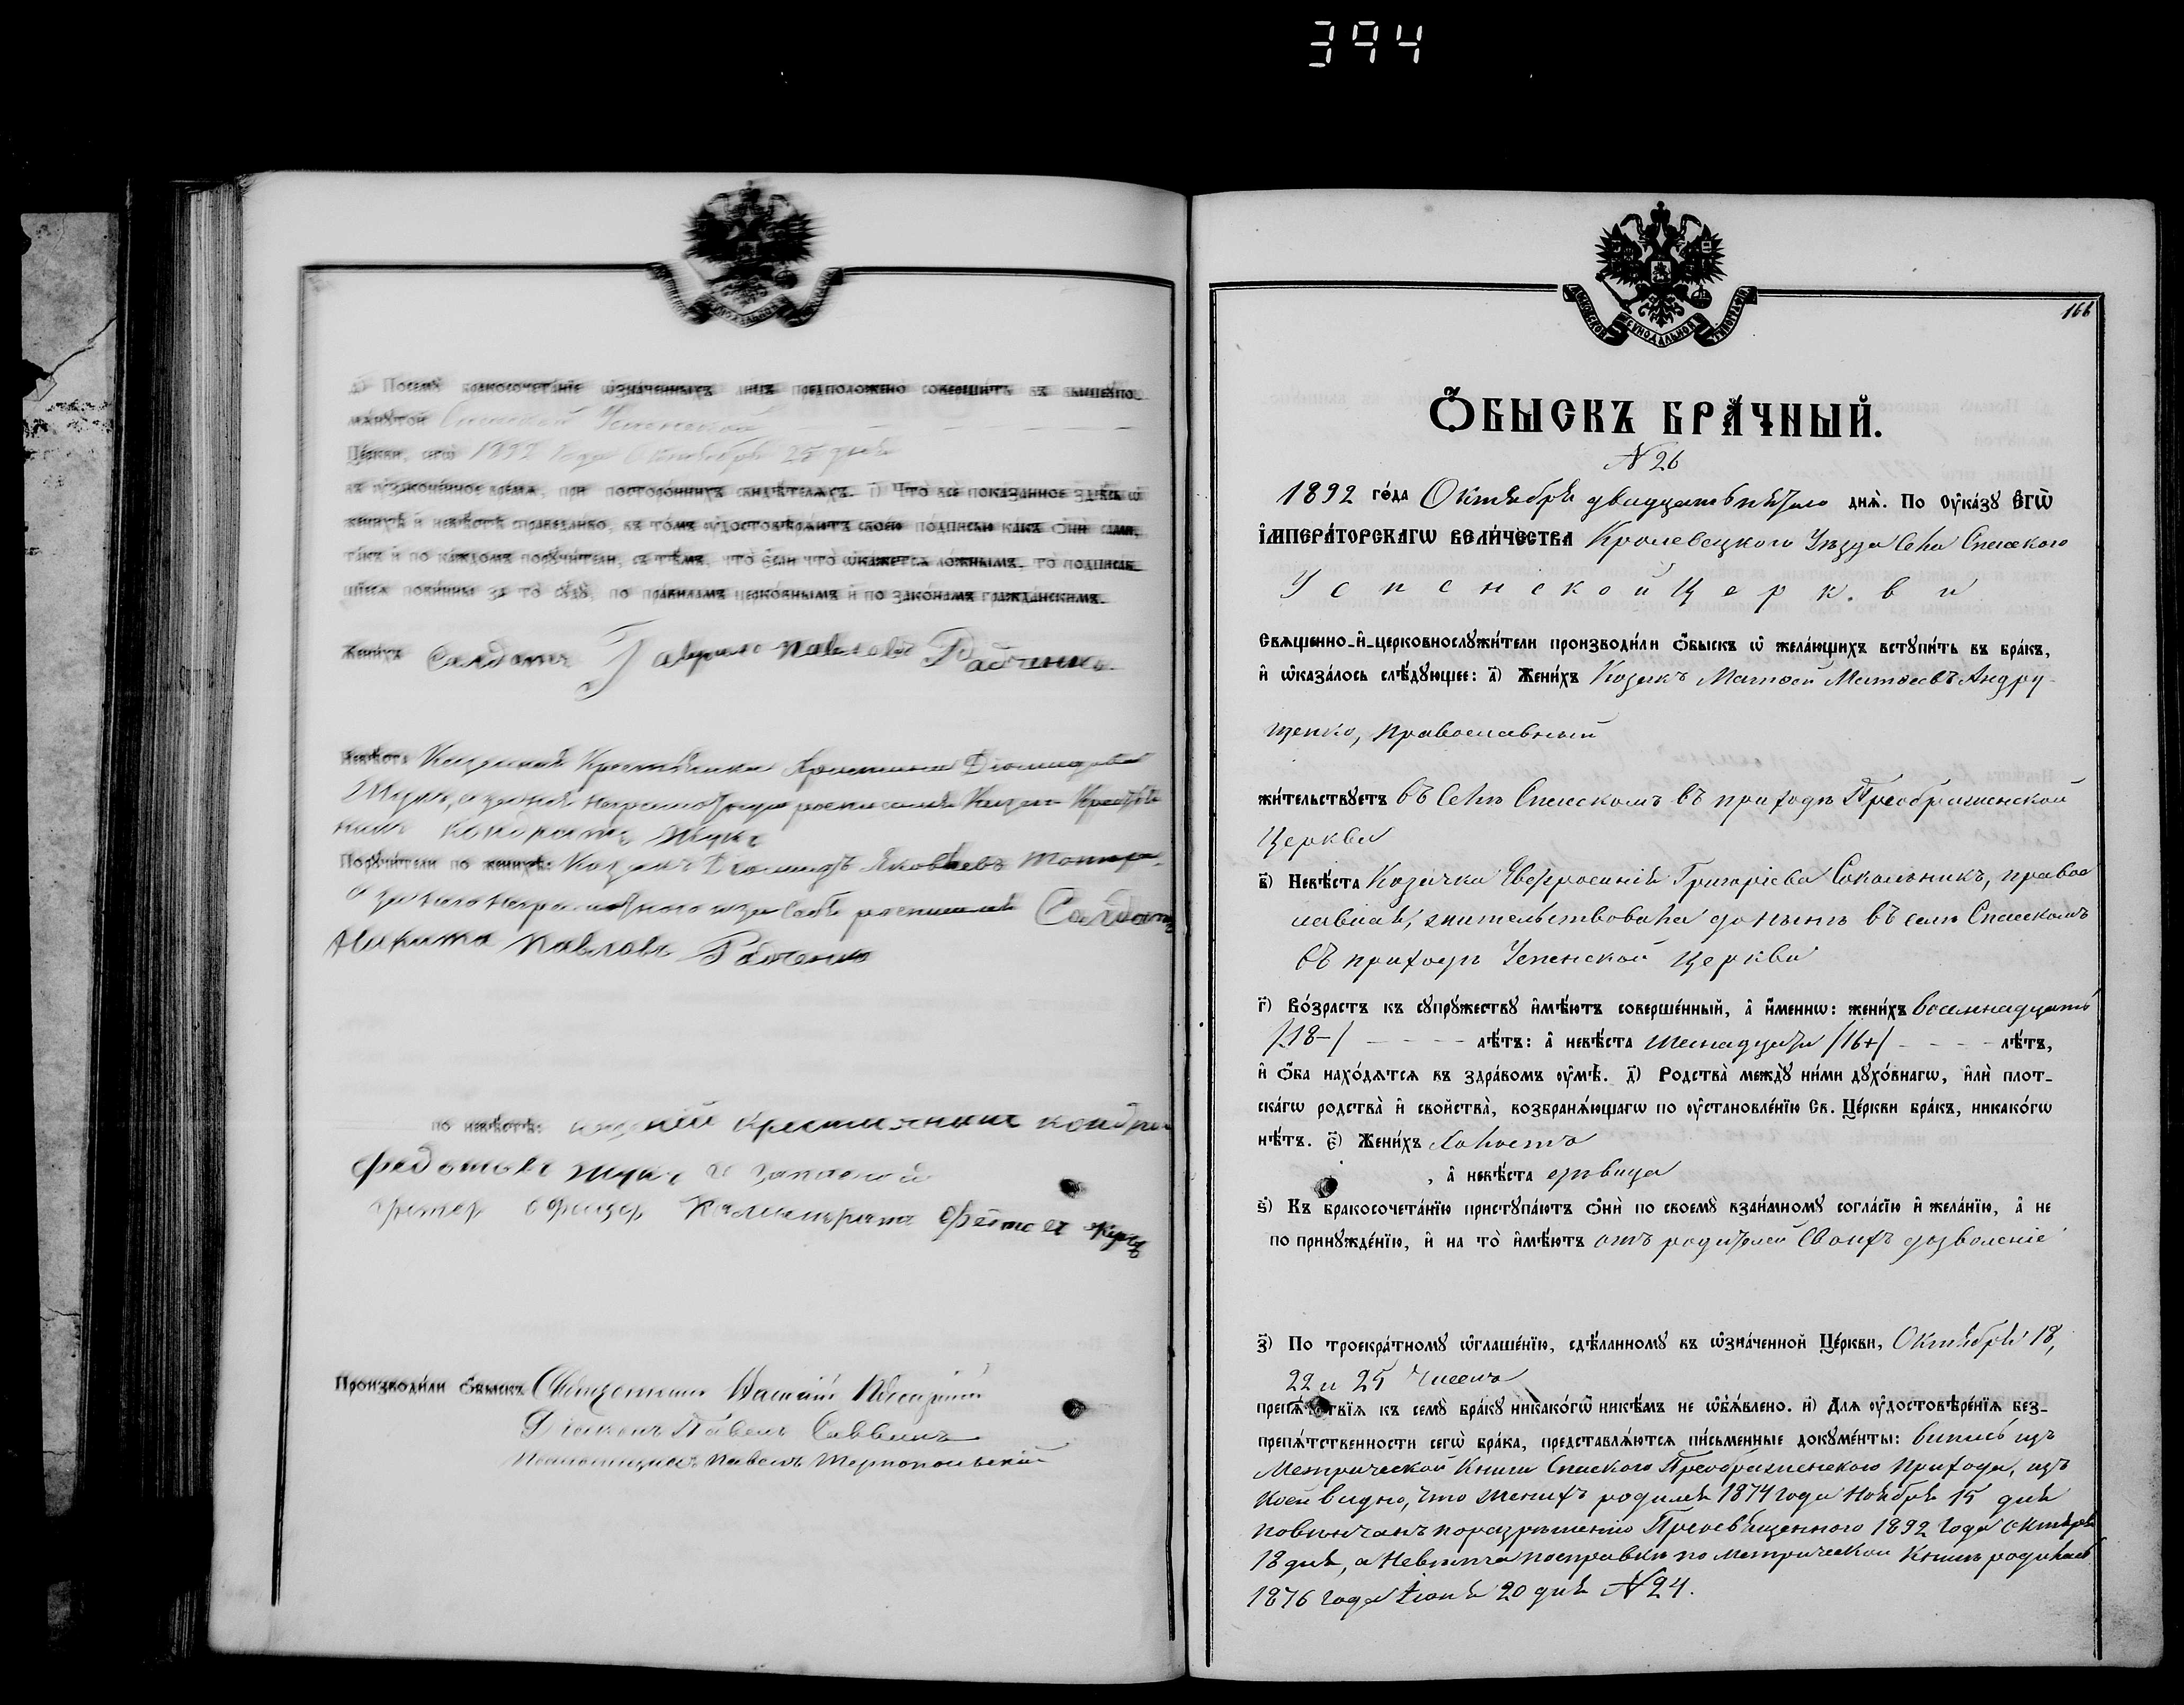 394
д҃) Посемꙋ̀ бракосочета́нїе ѡ҆зна́ченныхъ ли́цъ предположено̀ соверши́ть въ вышеꙋпо-
мѧ́нꙋтой Спасской Успенской
Це́ркви, сегѡ̀ 1892 года Октября 25 дня
въ ᲂу҆зако́ненное вре́мѧ, при посторо́ннихъ свидѣ́телѧхъ. і҃) Что̀ всѐ пока́занное здѣ́сь ѡ҆
женихѣ̀ и҆ невѣ́стѣ справедли́во, въ то́мъ ᲂу҆достовѣрѧ́ютъ свое́ю по́дписью ка́къ ѻ҆нѝ са́ми,
та́къ и҆ по ка́ждомъ порꙋчи́тели, съ тѣ́мъ, что̀ є҆́сли что̀ ѡ҆ка́жетсѧ ло́жнымъ, то̀ подписа́в-
шїесѧ пови́нны за то̀ сꙋдꙋ̀, по пра́виламъ церко́внымъ и҆ по зако́намъ гражда́нскимъ.
Жени́хъ Салдатъ Гаврило Павловъ Радченко
Невѣ́ста
Жукъ, а за неё неграмотную росписался Казен. Крестья
нинъ Кондратъ Жукъ
Порꙋчи́тели по женихѣ̀: Козакъ Диомидъ Яковлевъ
а за него неграмотного и за себя росписался Салдатъ
Никита Павловъ Радченко
по невѣ́стѣ: казеній крестиянинъ кондра
федотовъ жукъ и запасной
унтер офицер
Производи́ли ѻ҆́быскъ Священникъ
Діаконъ Павелъ Саввинъ
Псаломщикъ Павелъ Тернопольскій
МОСКОВСКОЙ СѴНОДАЛЬНОЙ ТИПОГРАФІИ
166
Ѻ҆́БЫСКЪ БРА́ЧНЫЙ.
N 26
1892 го́да Октября двадцать пятого днѧ̀. По ᲂу҆ка́зꙋ Є҆ГѠ̀
І҆МПЕРА́ТОРСКАГѠ ВЕЛИ́ЧЕСТВА Кролевецкого Уѣзда Села Спасского
Успенской Церкви
Свѧще́нно-и҆-церковнослꙋжи́тели производи́ли ѻ҆́быскъ ѡ҆ жела́ющихъ встꙋпи́ть въ бра́къ,
и҆ ѡ҆каза́лось слѣ́дꙋющее: а҃) Жени́хъ Козакъ Матвей Матвеевъ Андру-
щенко, православный
жи́тельствꙋетъ въ Селѣ Спасскомъ въ приходѣ Преображенской
Церкви
в҃) Невѣ́ста Козачка Евфросинія Григоріева Сокольникъ, правос
лавная, жительствовала до нынѣ въ селѣ Спасскомъ
въ приходѣ Успенской Церкви
г҃) Во́зрастъ къ сꙋпрꙋ́жествꙋ и҆мѣ́ютъ соверше́нный, а҆ и҆́меннѡ: жени́хъ восемнадцать
/18-/ лѣ́тъ: а҆ невѣ́ста шеснадцать /16+/ лѣ́тъ,
и҆ ѻ҆́ба нахо́дѧтсѧ въ здра́вомъ ᲂу҆мѣ̀. д҃) Родства̀ междꙋ̀ ни́ми дꙋхо́внагѡ, и҆лѝ плот-
ска́гѡ родства̀ и҆ сво́йства, возбранѧ́ющагѡ по ᲂу҆становле́нїю Св. Це́ркви бра́къ, никако́гѡ
нѣ́тъ. є҃) Жени́хъ Холостъ
, а҆ невѣ́ста дѣвица
ѕ҃) Къ бракосочета́нїю пристꙋпа́ютъ ѻ҆нѝ по своемꙋ̀ взаи́мномꙋ согла́сїю и҆ жела́нїю, а҆ не
по принꙋжде́нїю, и҆ на то̀ и҆мѣ́ютъ отъ родителей своихъ дозволеніе
з҃) По троекра́тномꙋ ѡ҆глаше́нїю, сдѣ́ланномꙋ въ ѡ҆зна́ченной Це́ркви, Октября 18,
22 и 25 числъ
препѧ́тствїѧ къ семꙋ̀ бра́кꙋ никако́гѡ нике́мъ не ѡ҆б̾ѧ́влено. и҃) Длѧ ᲂу҆достовѣре́нїѧ без-
препѧ́тственности сегѡ̀ бра́ка, представлѧ́ютсѧ пи́сьменные докꙋме́нты: выпись изъ
Метрической Книги Спаского Преображенского прихода, изъ
коей видно, что женихъ родился 1874 года Ноября 15 дня
повѣнчанъ по разрѣшенію Преосвященного 1892 года Октября
18 дня, а Невѣста по справкѣ по метрической Книгѣ родилась
1876 года Іюня 20 дня N 24.